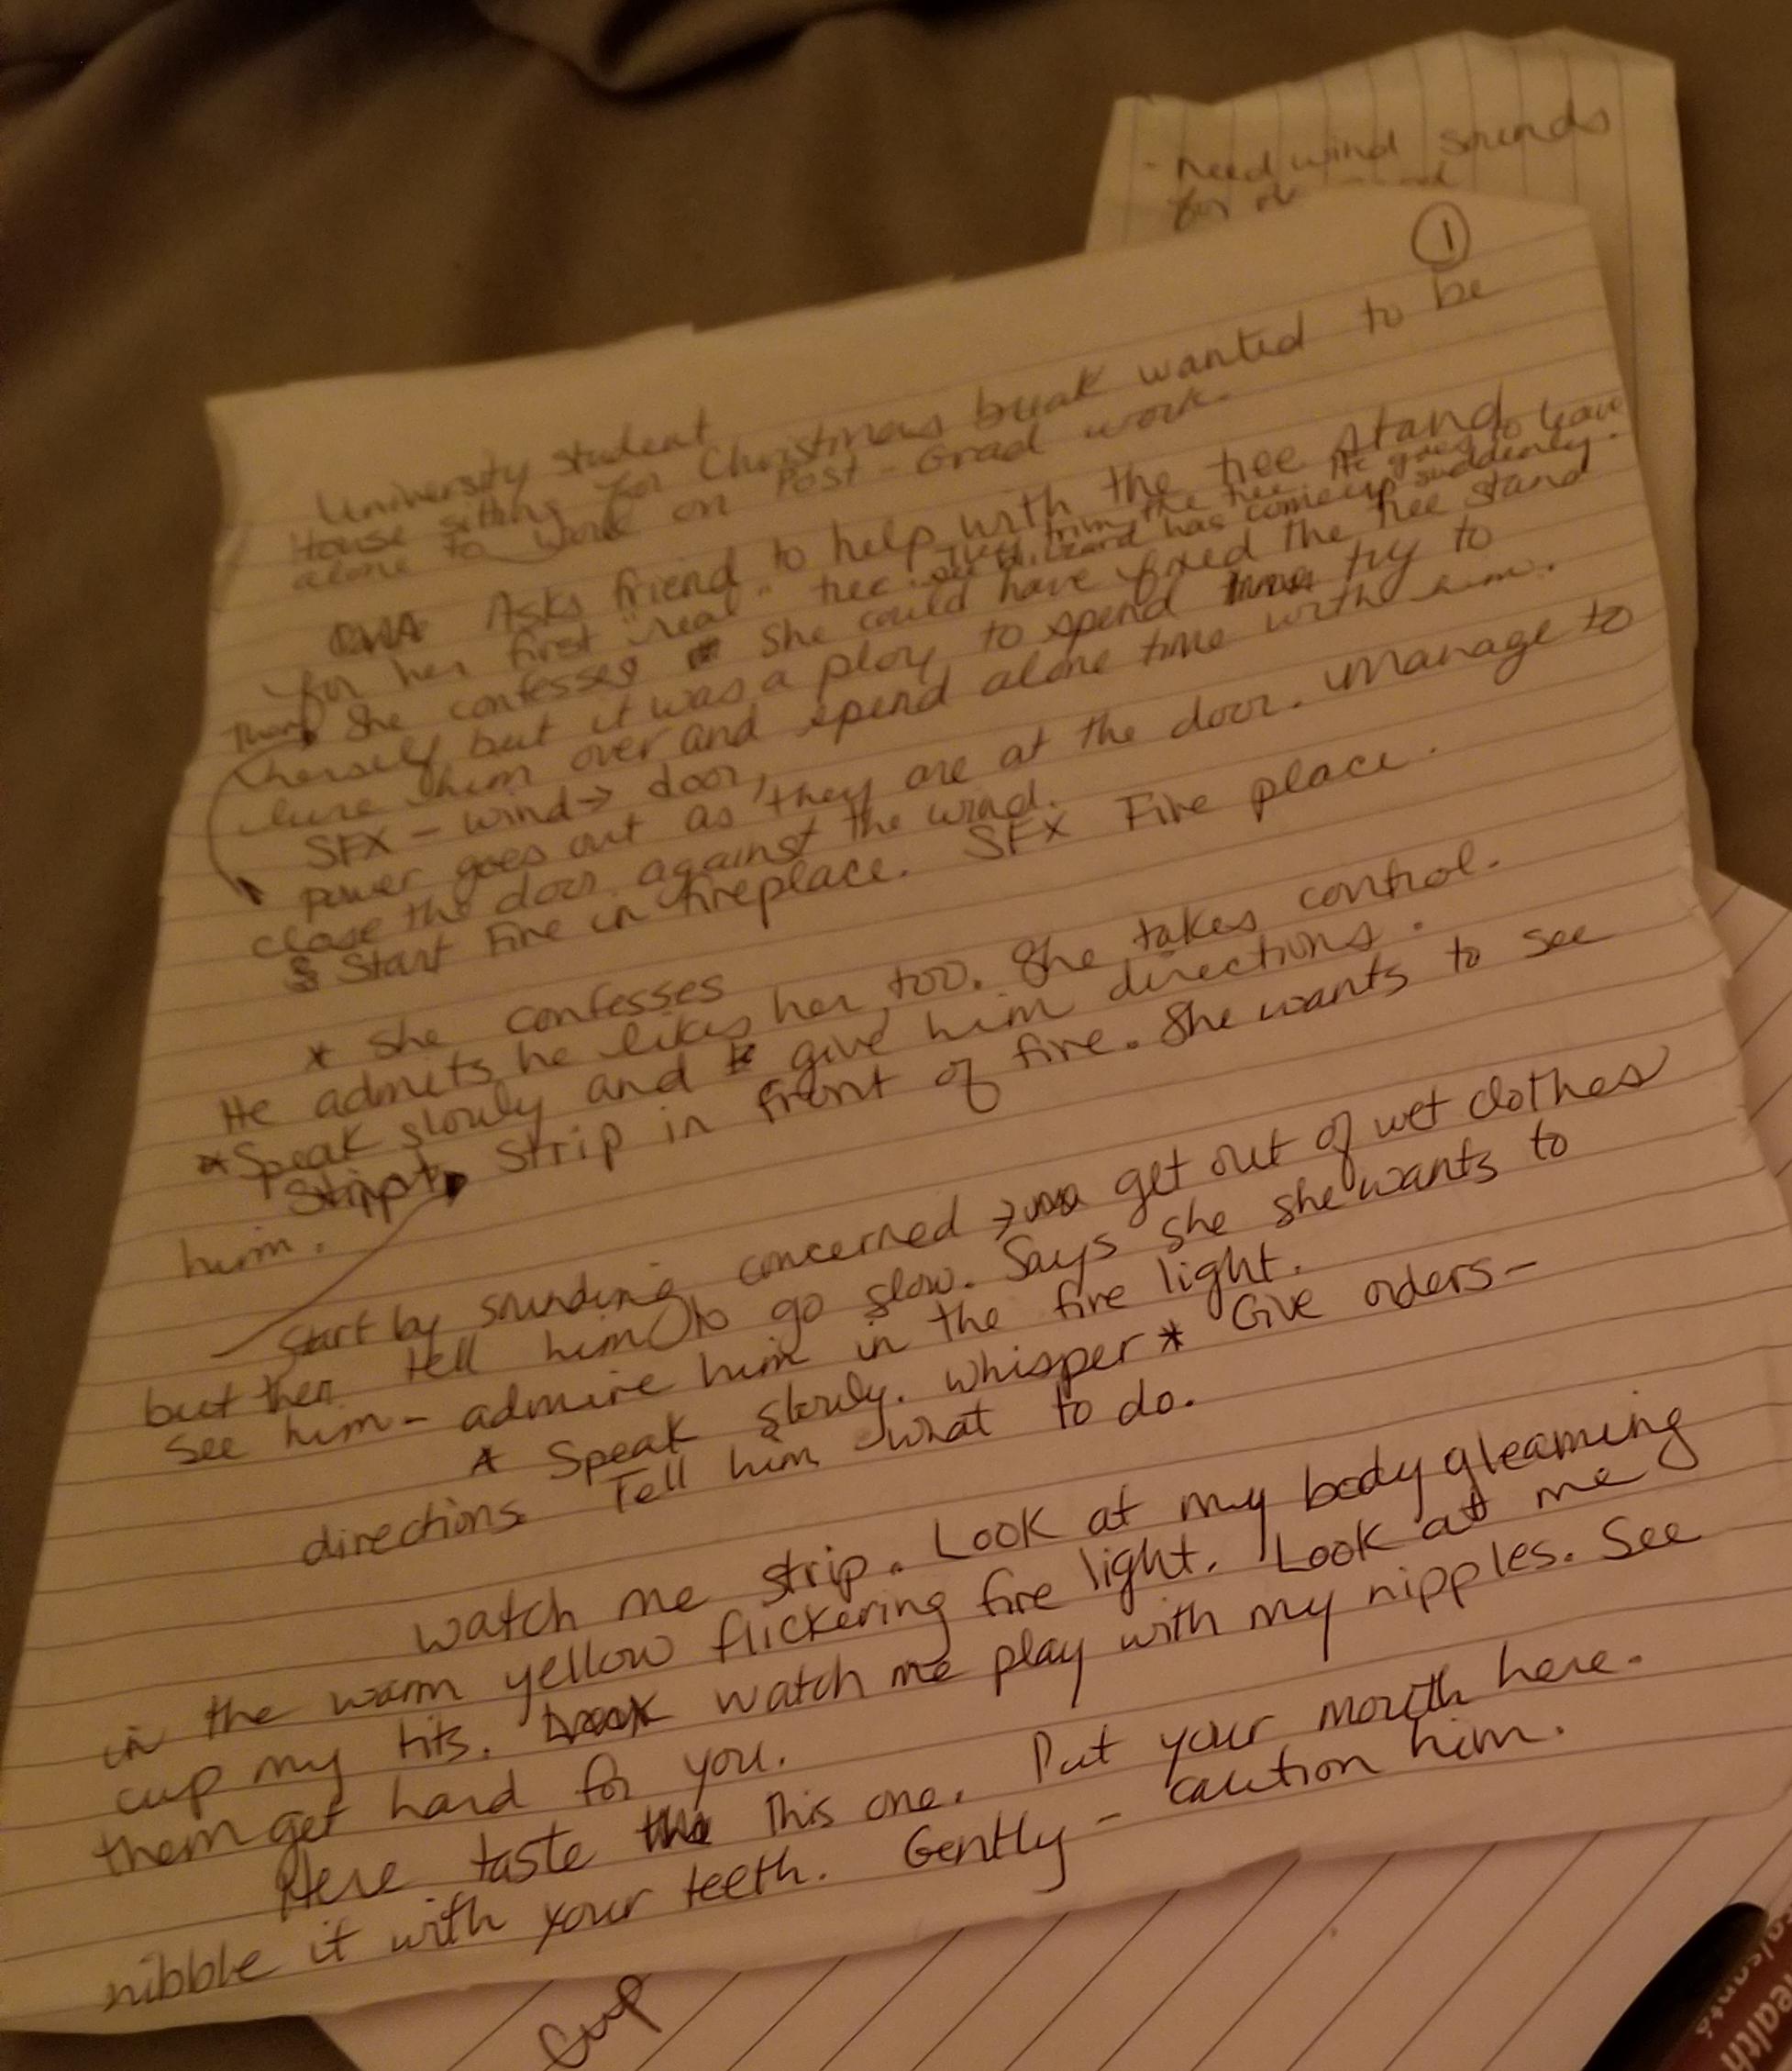 - Need wind sounds
for
①
University student
House sitting for Christmas break wanted to be
alone to work on Post-Grad work.
Asks friend to help with the tree stand
for her first "real" tree. They trim the tree. He goes to leave
see blizzard has come up suddenly.
Then she confesses she could have fixed the tree stand
herself but it was a ploy to spend try to
lure him over and spend alone time with him.
SFX - wind → door,
power goes out as they are at the door. Manage to
close the door against the wind.
Start Fire in fireplace. SFX Fire place.
* She confesses
He admits he likes her too. She takes control.
* Speak slowly and give him directions.
Strip Strip in front of fire. She wants to see
him.
Start by sounding concerned → get out of wet clothes
but then tell him to go slow. Says she she wants to
see him - admire him in the fire light.
* Speak slowly. Whisper * Give orders -
directions. Tell him what to do.
Watch me strip. Look at my body gleaming
in the warm yellow flickering fire light. Look at me
cup my tits. watch me play with my nipples. See
them get hard for you.
Here taste this one. Put your mouth here.
nibble it with your teeth. Gently - caution him.
Cup